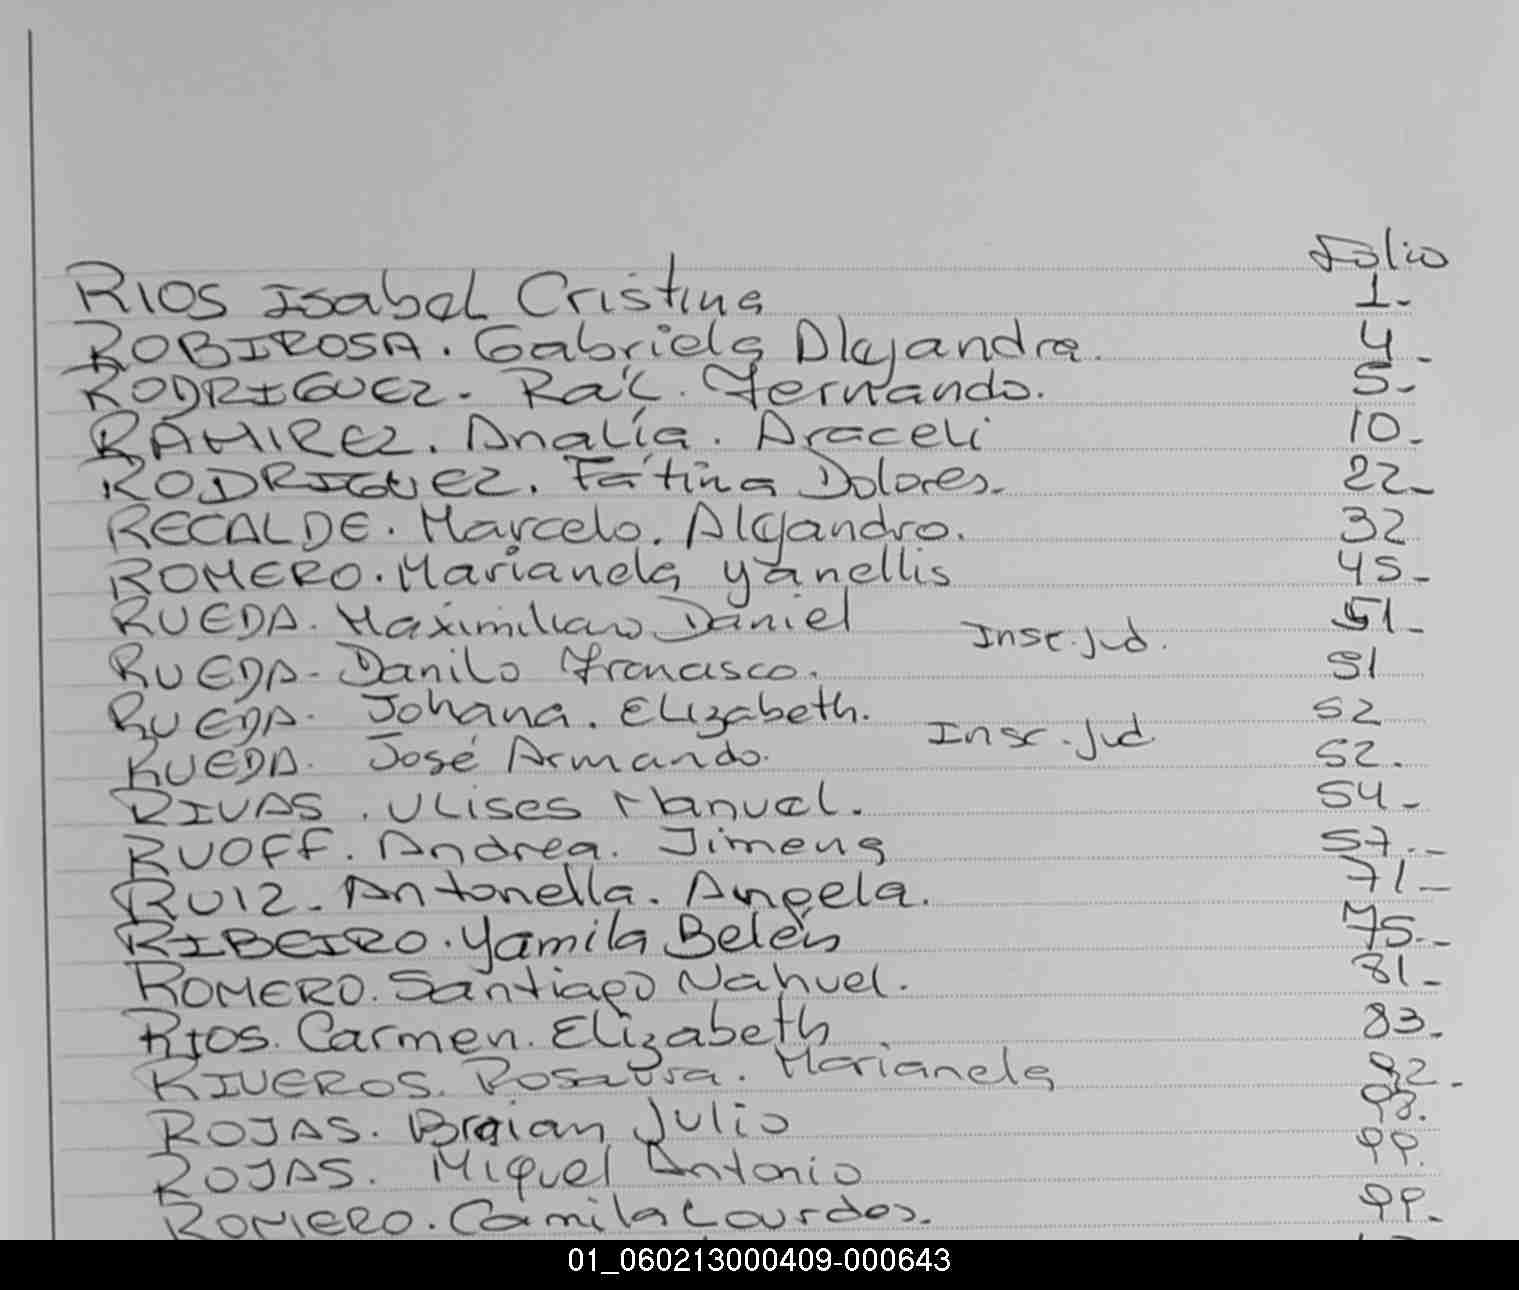 Folio
RIOS Isabel Cristina 1-
ROBIROSA. Gabriela Alejandra. 4-
RODRIGUEZ- Raúl. Fernando. 5-
RAMIREZ. Analía. Araceli 10-
RODRIGUEZ. Fátima Dolores- 22-
RECALDE. Marcelo. Alejandro. 32
ROMERO. Marianela Yanellis 45-
RUEDA. Maximiliano Daniel Insc. jud. 51-
RUEDA- Danilo Francisco. 51
RUEDA. Johana. Elizabeth. Insc. jud 52
RUEDA. José Armando. 52.
RIVAS. Ulises Manuel. 54-
RUOFF. Andrea. Jimena 57.-
RUIZ- Antonella. Angela. 71-
RIBEIRO. Yamila Belén 75.-
ROMERO. Santiago Nahuel. 81-
RIOS. Carmen. Elizabeth 83.
RIVEROS. Rosaura. Marianela 92-
ROJAS. Braian Julio 98.
ROJAS. Miguel Antonio 99.
ROMERO. Camila Lourdes. 99-
01_060213000409-000643